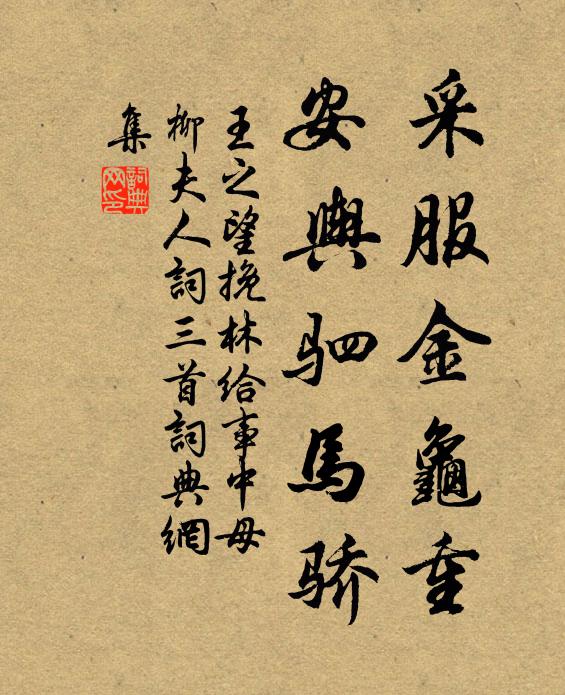 采服金龜重
安輿驷馬骄
王之望挽林給事中母
柳夫人詞三首詞典網
集
詞典网印